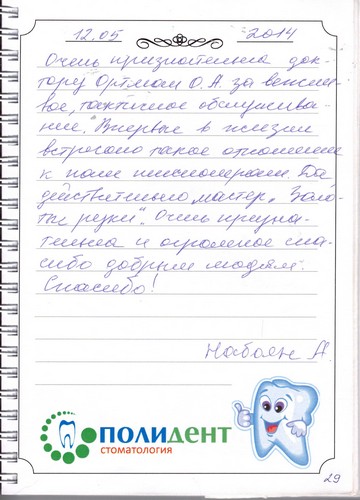 12.05 2014
Очень признательна док-
тору Ортман О.А. за вежли-
вое, тактичное обслужива-
ние. Впервые в жизни
встречаю такое отношение
к нам пенсионерам. Да,
действительно мастер, "Золо-
ты ручки". Очень призна-
тельна и огромное спа-
сибо добрым людям.
Спасибо!
Набоян А.
ПОЛИДЕНТ
стоматология
29